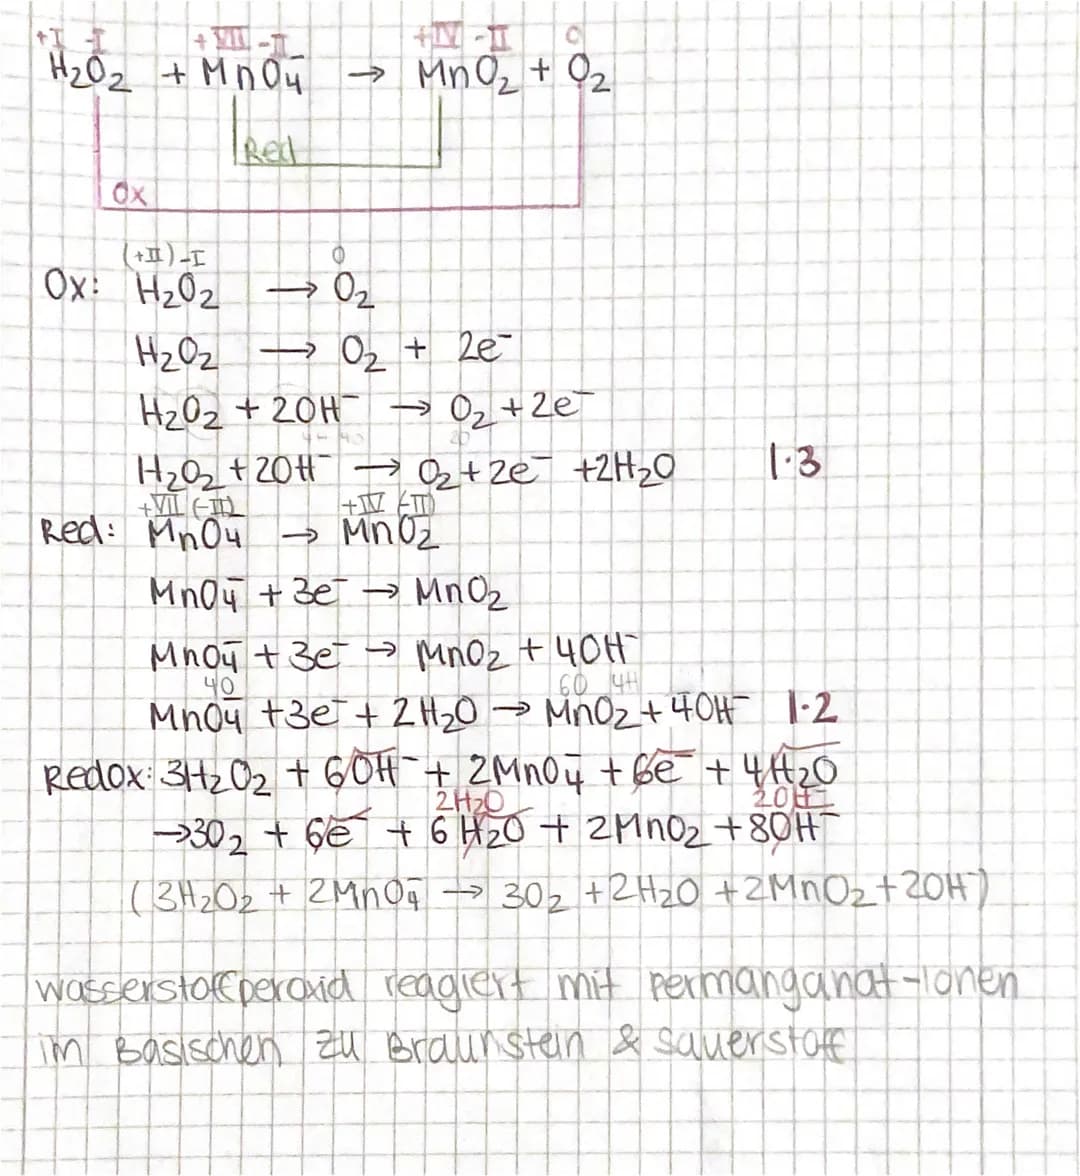 +I -I +VII -II +IV -II 0
H₂O₂ + MnO₄⁻ → MnO₂ + O₂
Red
Ox
(+II) -I 0
Ox: H₂O₂ → O₂
H₂O₂ → O₂ + 2e⁻
H₂O₂ + 2OH⁻ → O₂ + 2e⁻
H₂O₂ + 2OH⁻ → O₂ + 2e⁻ + 2H₂O 1·3
+VII (-II) +IV (-II)
Red: MnO₄⁻ → MnO₂
MnO₄⁻ + 3e⁻ → MnO₂
MnO₄⁻ + 3e⁻ → MnO₂ + 4OH⁻
4O 6O 4H
MnO₄⁻ + 3e⁻ + 2H₂O → MnO₂ + 4OH⁻ 1·2
Redox: 3H₂O₂ + 6OH⁻ + 2MnO₄⁻ + 6e⁻ + 4H₂O
2H₂O 2OH⁻
→ 3O₂ + 6e⁻ + 6H₂O + 2MnO₂ + 8OH⁻
(3H₂O₂ + 2MnO₄⁻ → 3O₂ + 2H₂O + 2MnO₂ + 2OH⁻)
Wasserstoffperoxid reagiert mit Permanganat-Ionen
im Basischen zu Braunstein & Sauerstoff